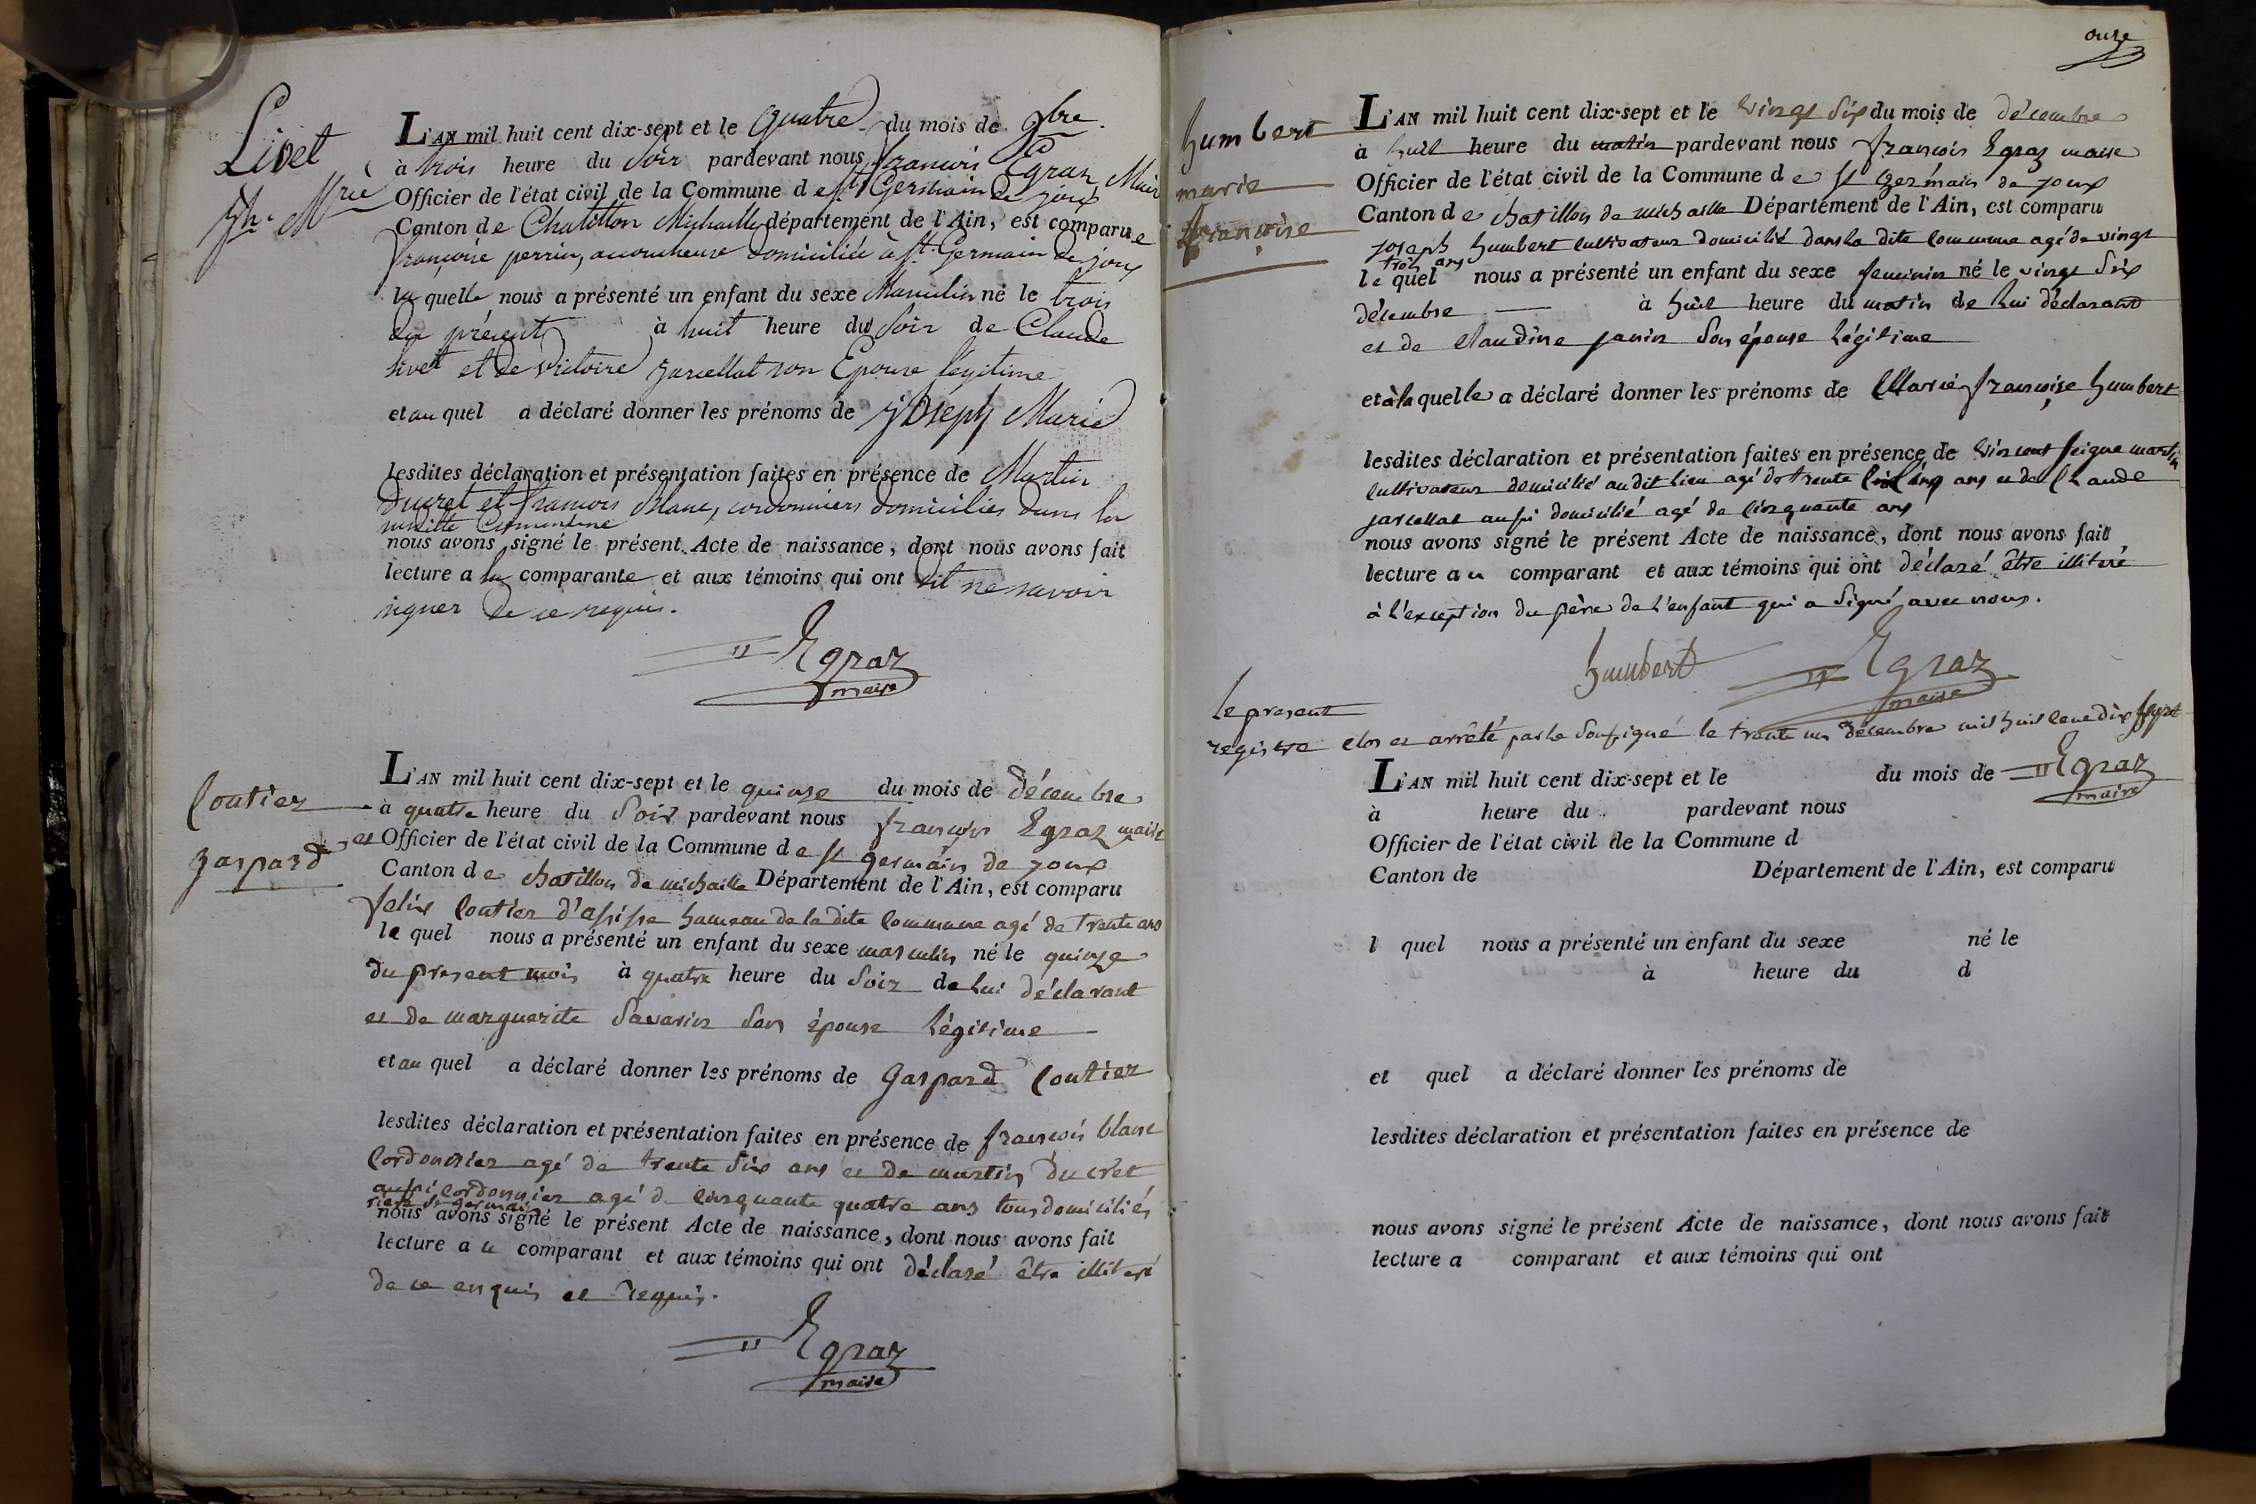 Livet
Jh. Mrie
L'AN mil huit cent dix-sept et le quatre du mois de 9bre.
à trois heure du soir pardevant nous françois Egraz Maire
Officier de l'état civil de la Commune de St Germain de joux
Canton de Chatillon Michaille département de l'Ain, est comparue
françoise perrin, accoucheuse domiciliée à St. Germain de joux
la quelle nous a présenté un enfant du sexe Masculin né le trois
du présent à huit heure du soir de Claude
livet et de Victoire jarcellat son Epouse légitime
et au quel a déclaré donner les prénoms de joseph Marie
lesdites déclaration et présentation faites en présence de Martin
Ducret et françois Blanc, cordonniers domiciliés dans la
susdite Commune
nous avons signé le présent Acte de naissance, dont nous avons fait
lecture a la comparante et aux témoins qui ont dit ne savoir
signer de ce requis.
Egraz
maire
Coutier
gaspard
L'AN mil huit cent dix-sept et le quinze du mois de décembre
à quatre heure du soir pardevant nous françois Egraz maire
et Officier de l'état civil de la Commune de st germain de joux
Canton de chatillon de michaille Département de l'Ain, est comparu
felix Coutier d'assisse hameau de la dite Commune agé de trente ans
le quel nous a présenté un enfant du sexe masculin né le quinze
du present mois à quatre heure du soir de lui déclarant
et de marguerite Savarin son épouse légitime
et au quel a déclaré donner les prénoms de gaspard Coutier
lesdites déclaration et présentation faites en présence de françois blanc
Cordonnier agé de trente six ans et de martin ducret
aussi cordonnier agé d cinquante quatre ans tous domiciliés
rière st germain
nous avons signé le présent Acte de naissance, dont nous avons fait
lecture a u comparant et aux témoins qui ont déclaré être illiteré
de ce enquis et requis.
Egraz
maire
onze
humbert
marie
françoise
L'AN mil huit cent dix-sept et le vingt six du mois de décembre
à huit heure du matin pardevant nous françois Egraz maire
Officier de l'état civil de la Commune de st germain de joux
Canton de chatillon de michaille Département de l'Ain, est comparu
joseph humbert cultivateur domicilié dans la dite Commune agé de vingt
trois ans
le quel nous a présenté un enfant du sexe feminin né le vingt six
décembre à huit heure du matin de lui déclarant
et de claudine janin son épouse légitime
et à la quelle a déclaré donner les prénoms de Marie françoise humbert
lesdites déclaration et présentation faites en présence de vincent seigne martin
cultivateur domicilié au dit lieu agé de trente cinq ans et de Claude
jarcellat aussi domicilié agé de cinquante ans
nous avons signé le présent Acte de naissance, dont nous avons fait
lecture a u comparant et aux témoins qui ont déclaré être illiteré
à l'exception du père de l'enfant qui a signé avec nous.
humbert Egraz
maire
le present
registre clos et arrêté par le soussigné le trente un décembre mil huit cent dix sept
Egraz
maire
L'AN mil huit cent dix-sept et le du mois de
à heure du pardevant nous
Officier de l'état civil de la Commune d
Canton de Département de l'Ain, est comparu
l quel nous a présenté un enfant du sexe né le
à heure du d
et quel a déclaré donner les prénoms de
lesdites déclaration et présentation faites en présence de
nous avons signé le présent Acte de naissance, dont nous avons fait
lecture a comparant et aux témoins qui ont